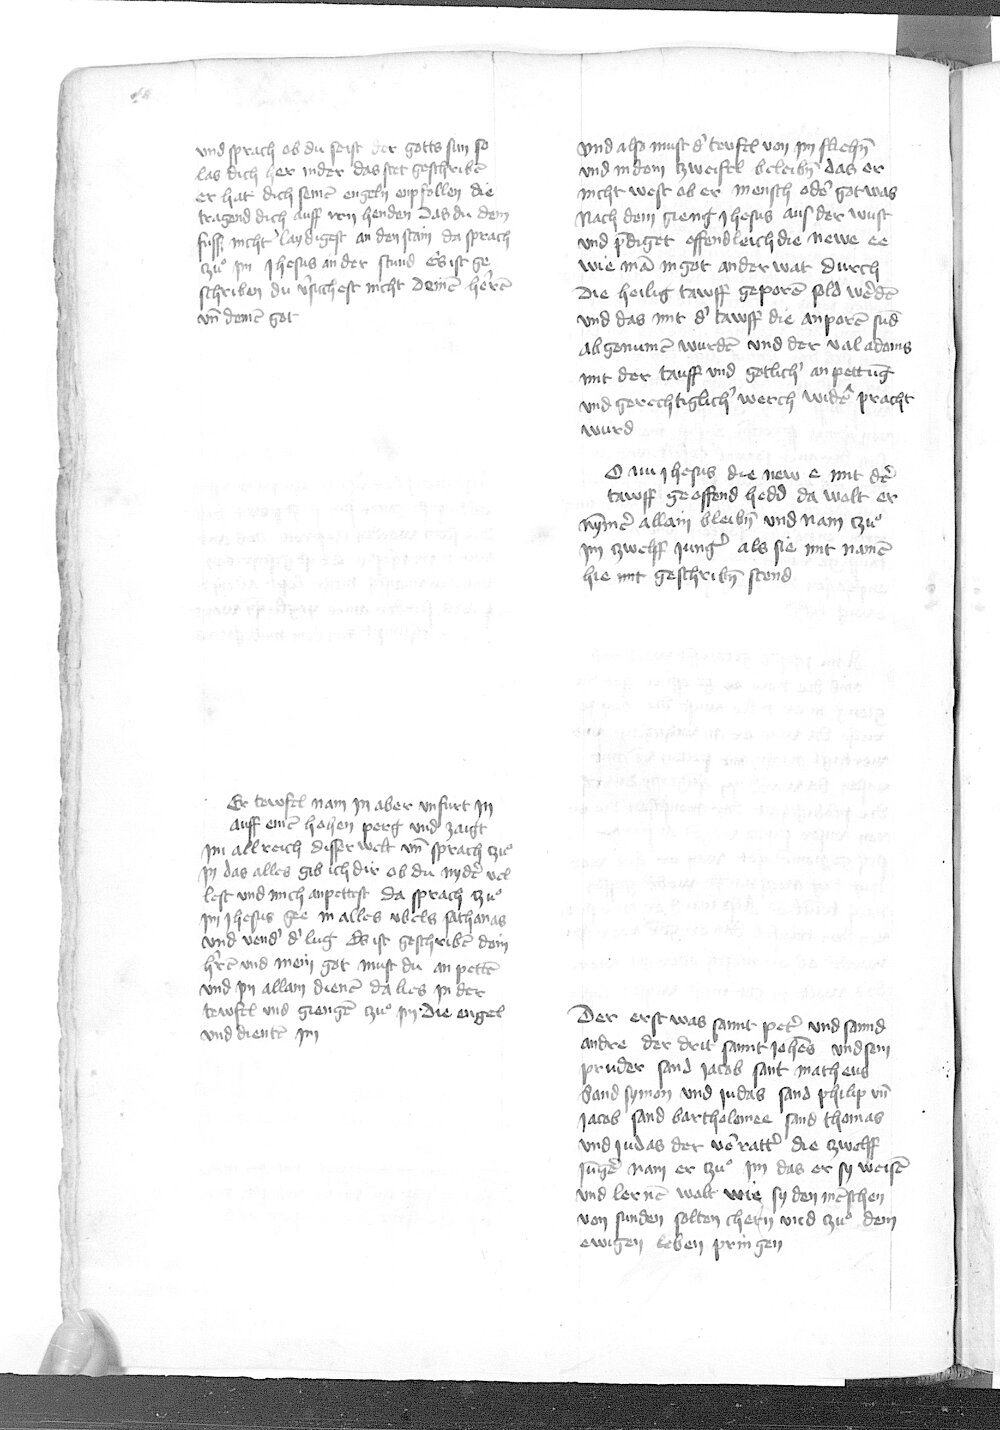 und sprach ob du seist der gotts sun so
las dich her nider das stet geschribē
er hat dich seinē engeln enpfollen die
tragend dich auff iren henden Das du dein
fuss nicht laydigest an den stain da sprach
zuͦ im Jhesus an der stund Es ist ge
schriben du v̓suchest nicht deinē herrē
vn̄ deinē got
Er tewfel nam in aber vn furt in
auff einē hohen perg und zaigt
im all reich disser welt vn̄ sprach zuͦ
im das alles gib ich dir ob du nyder vel
lest und mich anpettest da sprach zuͦ
im Jhesus gee in alles vbels sathanas
und vend' d' lug Es ist geschribē dein
h'rē und mein got must du an pettē
und im allain dienē da lies in der
tewfel und giengē zuͦ im Die engel
und dientē im
Und also must d' tewfel von im fliehn̄
und in dem zweifel beleibn̄ das er
nicht west ob er mensch oder got was
Nach dem gieng Jhesus aus der wust
und p̄diget offendleich die newe ee
wie mā in got ander wat durch
Die heilig tawff geporē sold werdē
und das mit d' tawff die anporē sud
abgenumē wurdē und der val adams
mit der tauff und gotlich' an pettūg
und gerechtiglich' werch wider pracht
wurd
O nu Jhesus die new e mit der
tawff geoffend hedd da wolt er
nymer allain bleibn̄ und nam zuͦ
im zwelff Junger als sie mit namē
hie mit geschribn̄ stend
Der erst was sannt peter und sannd
andre der drit sannt Johēs und sein
pruder sand Jacob sant matheus
Sand symon und Judas sand philip vn̄
Jacob sand bartholomee sand thomas
und Judas der verratter die zwelff
Jūger nam er zuͦ im das er sy weisē
und lernē wolt wie sy den mēschen
von sunden solten chern und zuͦ dem
ewigen leben pringen